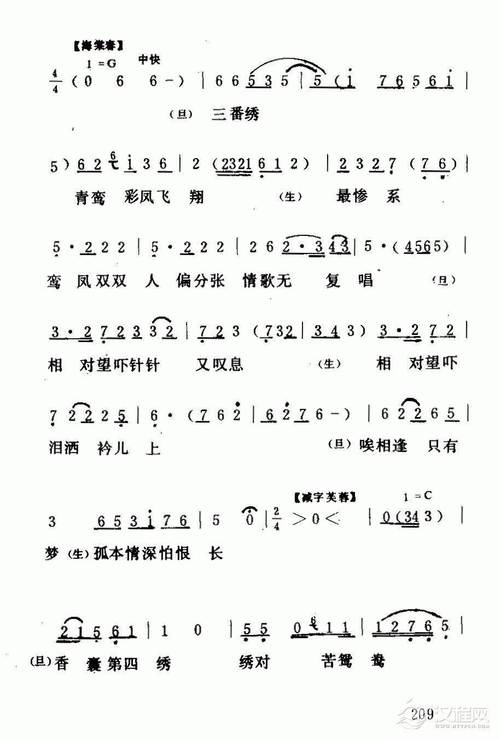 【海棠春】
1=G 中快
4/4 (0 6 6 -) | 6 6 5 3 5 | 5 (i 7 6 5 6 i |
(旦) 三番绣
5) 6 2 6 7 i 3 6 | 2 (2321 6 1 2) | 2 · 2 7 (7 6) |
青鸾 彩凤飞 翔 (生) 最惨 系
5 · 2 2 2 | 5 · 2 2 2 | 2 6 2 · 3 4 3 | 5 · (4565)
鸾 凤双双 人 偏分张 情歌无 复唱 (旦)
3 · 2 7 2 2 | 7 2 2 5 · | 7 (2 3 2) | 3 · 2 7 2 |
相 对望吓针针 又叹息 (生) 相对望吓
7 2 2 2 5 | 6 · (7 6 2 | 7 6 7 6 2 -) | 6 2 2 6 5 |
泪洒 衿儿 上 (旦)唉相逢 只有
【减字芙蓉】
1=C
3 6 5 3 i 7 6 | 5 0 | 2/4 >0< | 0 (3 4 3) |
梦 (生)孤本情深怕恨 长
2 1 5 6 1 | 1 0 | 5 5 6 0 1 1 | 1 2 7 6 5 |
(旦)香 囊第四 绣 绣对 苦鸳 鸯
209
汉程网